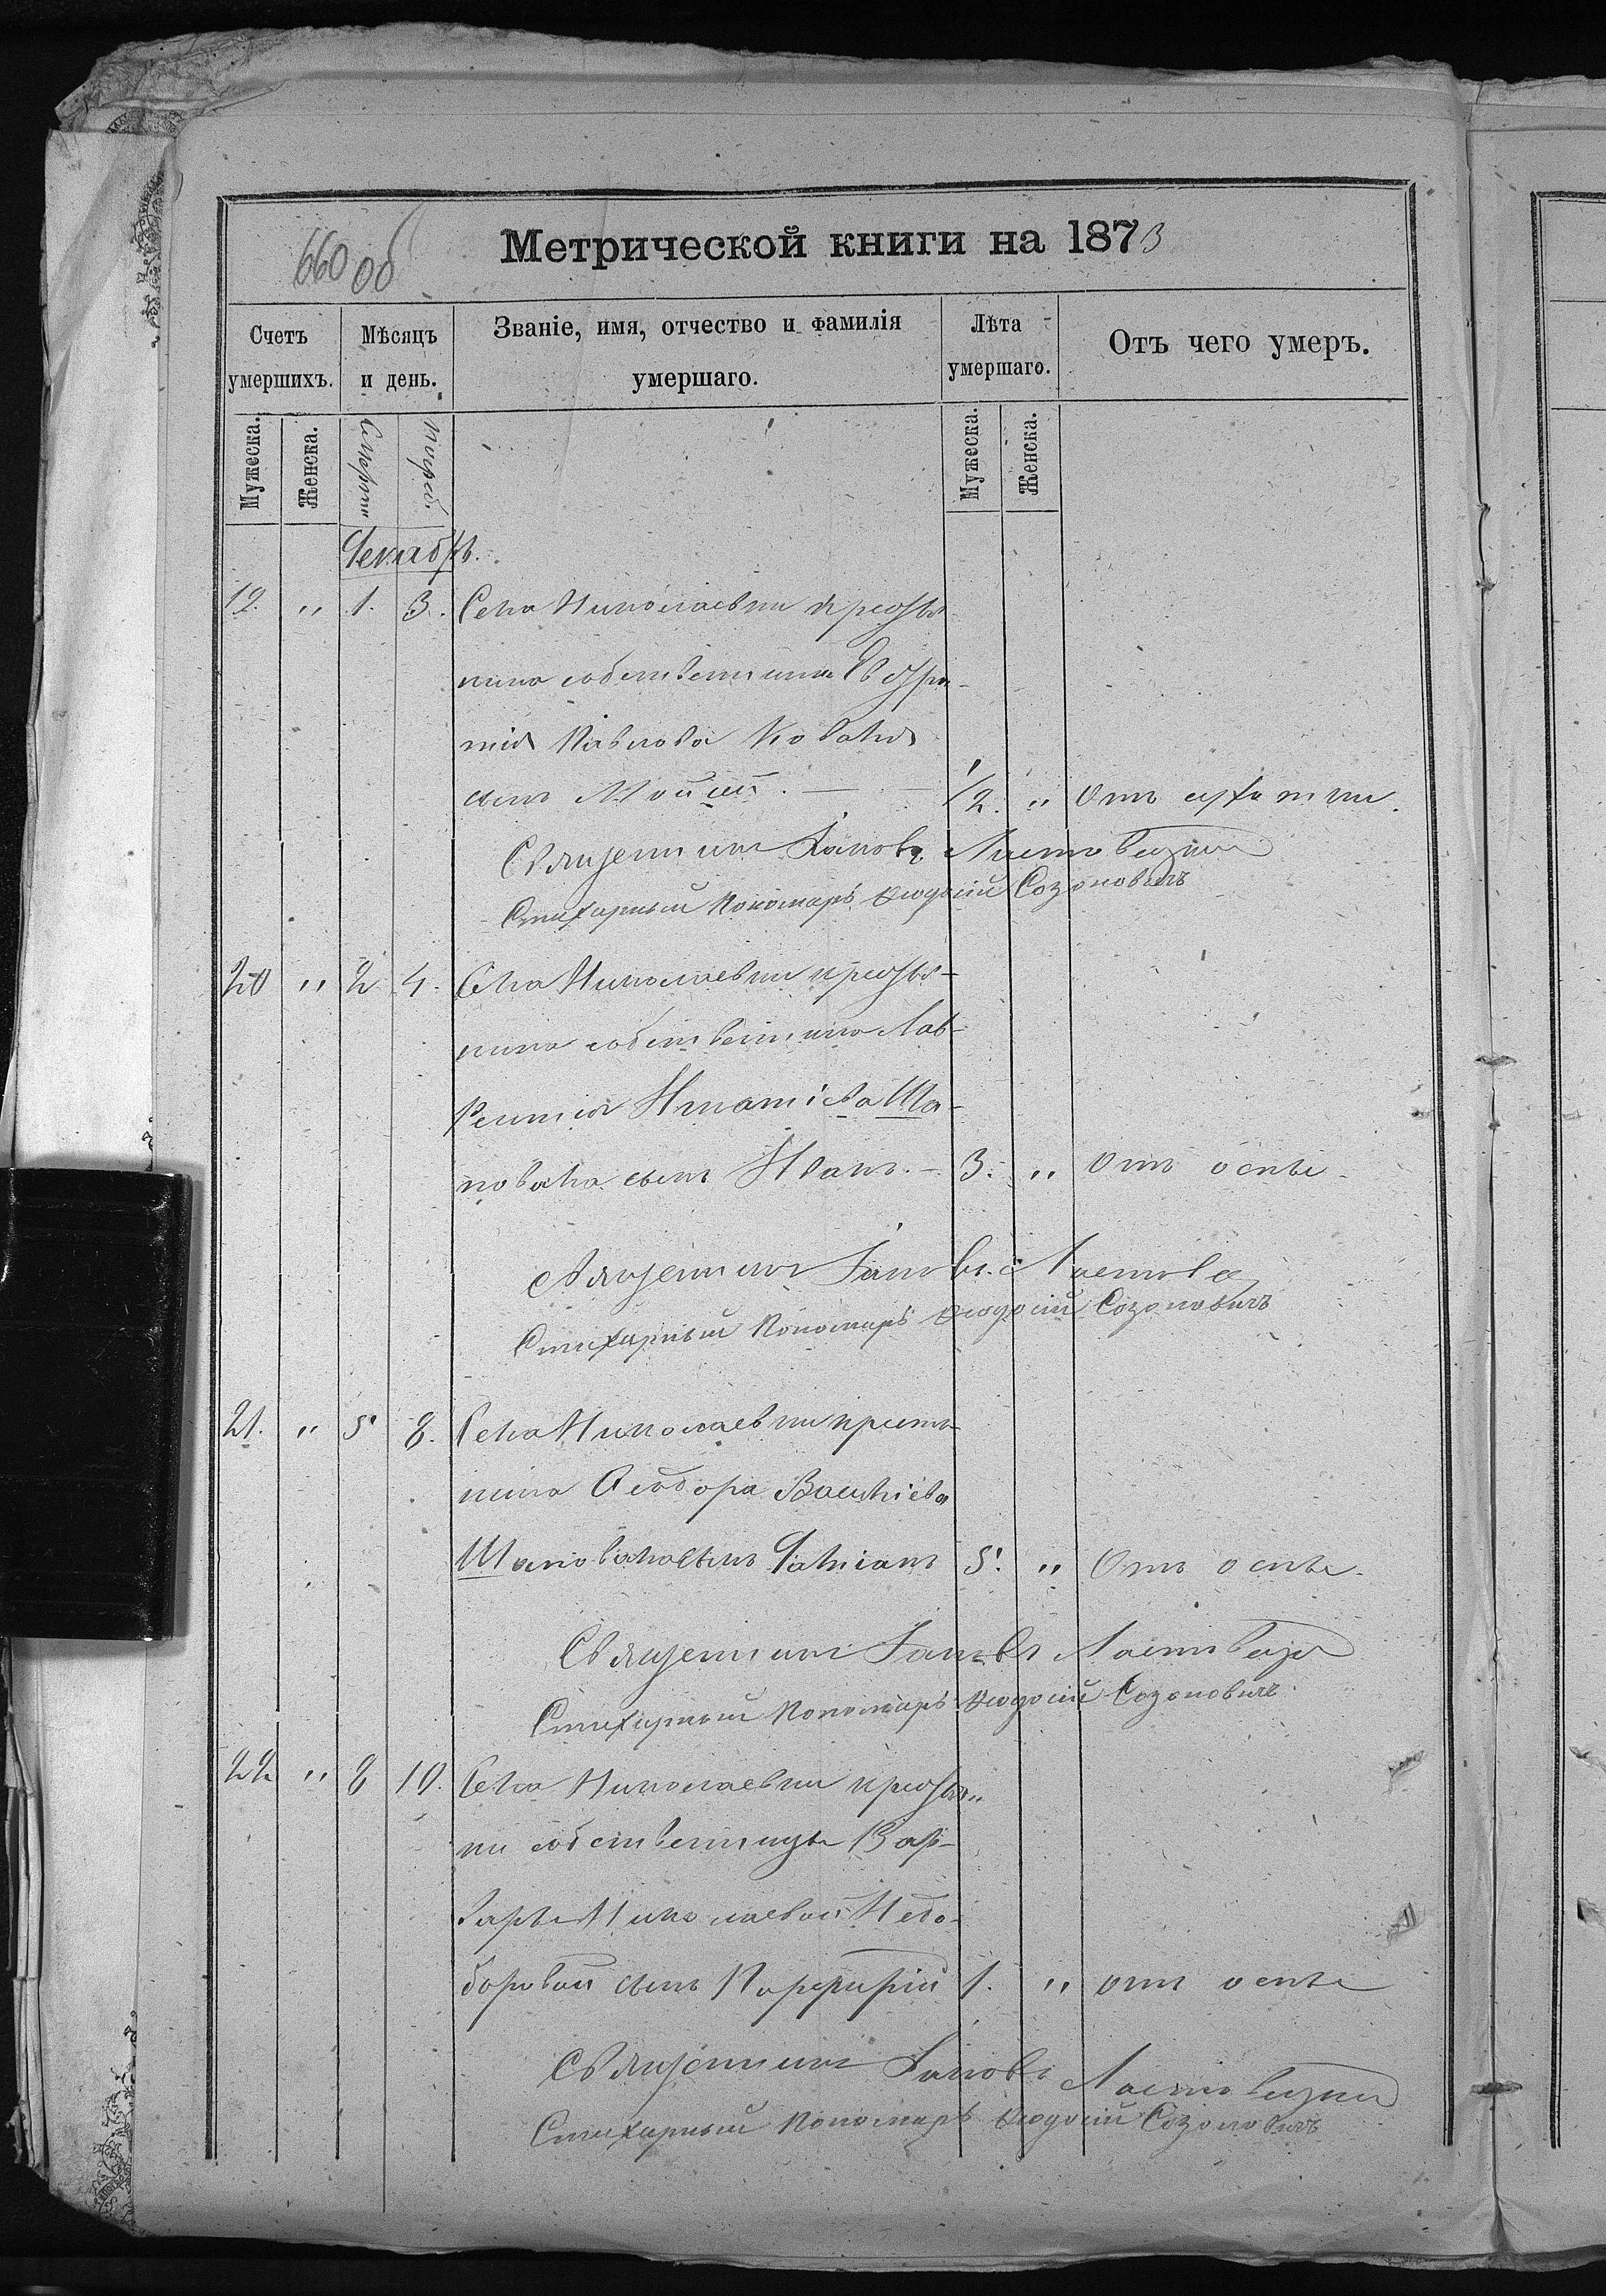 660 об
Метрической книги на 1873
Счетъ умершихъ.
Мѣсяцъ и день.
Званіе, имя, отчество и фамилія умершаго.
Лѣта умершаго.
Отъ чего умеръ.
Мужеска.
Женска.
Смерти
Погреб.
Мужеска.
Женска.
Декабрь.
19. " 1. 3. Села Николаевки крестья-
нина собственника Евфи-
мія Павлова Коваля
сынъ Моисей. — 1/2. " Отъ сухотки.
Священникъ Іаковъ
Стихарный Пономарь Феодосій Созоновичъ
20 " 2 4. Села Николаевки крестья-
нина собственника Лав-
рентія Игнатіева Ша-
повала сынъ Иванъ. — 3. " Отъ оспы.
Священникъ Іаковъ
Стихарный Пономарь Феодосій Созоновичъ
21. " 5 8. Села Николаевки крестья-
нина Феодора Василіева
Шаповала сынъ Даміанъ 5. " Отъ оспы.
Священникъ Іаковъ
Стихарный Пономарь Феодосій Созоновичъ
22 " 8 10. Села Николаевки крестьян-
ки собственницы Вар-
вары Николаевой Недо-
боровой сынъ Порфирій 1. " отъ оспы
Священникъ Іаковъ
Стихарный Пономарь Феодосій Созоновичъ